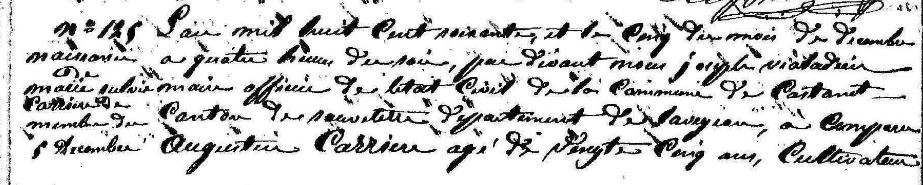 N° 125 L'an mil huit cent soixante, et le cinq du mois de décembre
naissance a quatre heures du soir, par dévant nous joseph
de
marie silvie maire officier de l'état civil de la Commune de Castanet
Carriere de
membre du Canton de sauveterre département de laveyron, a comparu
5 Decembre Augustin Carriere agé de vingte cinq ans, Cultivateur